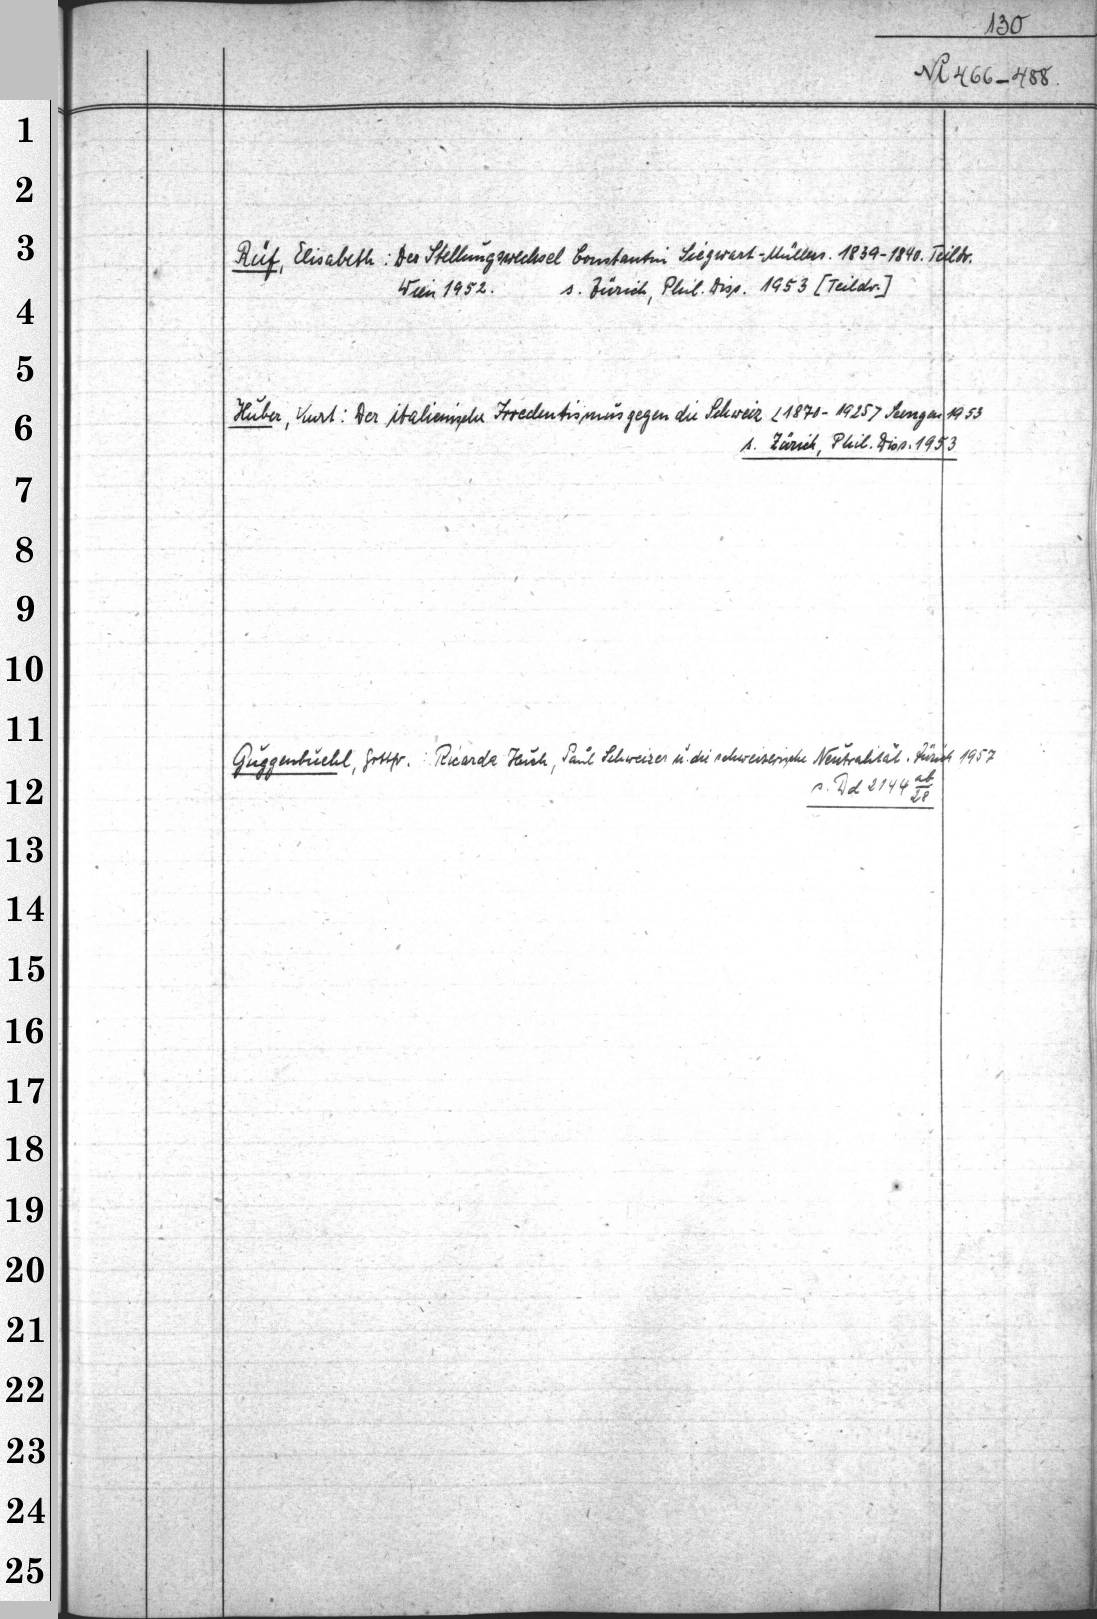 130
Ni 466-488.
1
2
3
Ruf, Elisabeth : Der Stellungswechsel Constantin Siegwart-Müllers. 1839-1840. Teildr.
Wien 1952. s. Zürich, Phil. Diss. 1953 [Teildr.]
4
5
6
Huber, Kurt : Der italienische Irredentismus gegen die Schweiz (1870-1925) Seengen 1953
s. Zürich, Phil. Diss. 1953
7
8
9
10
11
Guggenbuehl, Gottfr. : Ricarda Huch, Paul Schweizer u. die schweizerische Neutralität. Zürich 1957
12
s. Dd 2144 ab/28
13
14
15
16
17
18
19
20
21
22
23
24
25